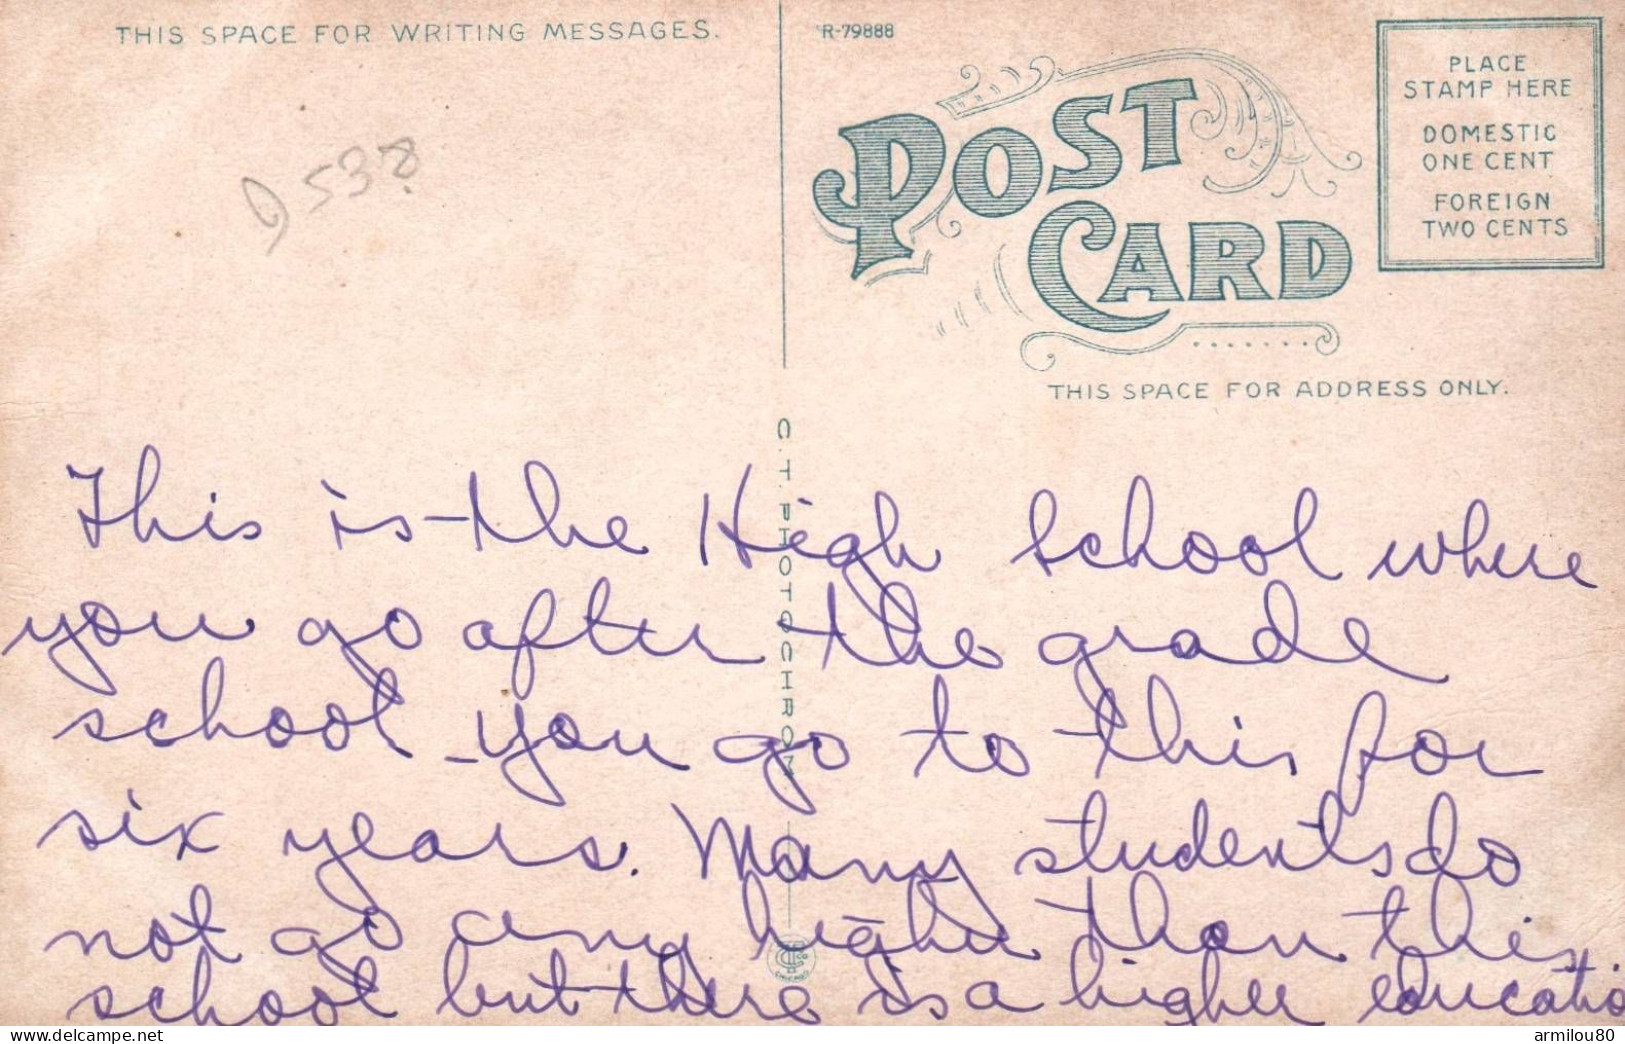 THIS SPACE FOR WRITING MESSAGES.
R-79888
POST CARD
PLACE
STAMP HERE
DOMESTIC
ONE CENT
FOREIGN
TWO CENTS
THIS SPACE FOR ADDRESS ONLY.
C.T. PHOTOCHROM
538
This is the High School where
you go after the grade
school you go to this for
six years. Many students do
not go any higher than this
school but there is a higher educatio
delcampe.net
armilou80